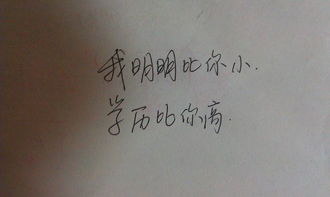 我明明比你小.
学历比你高.